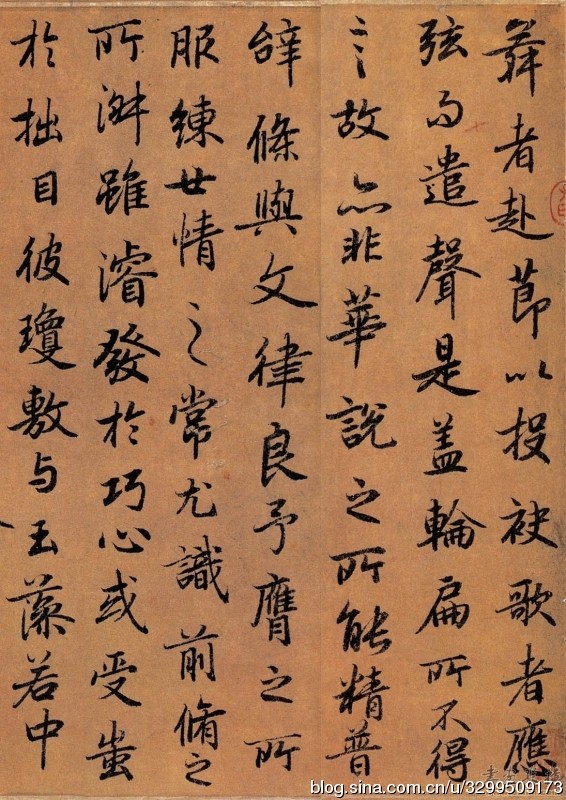 舞者赴節以投袂歌者應
弦而遣聲是盖輪扁所不得
言故亦非華說之所能精普
辝條與文律良予膺之所
服練世情之常尤識前脩之
所淑雖濬發於巧心或受蚩
於拙目彼瓊敷与玉藻若中
blog.sina.com.cn/u/3299509173